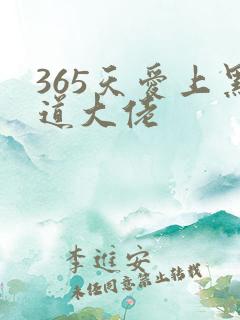 365天爱上黑
道大佬
李进安
未经同意禁止转载